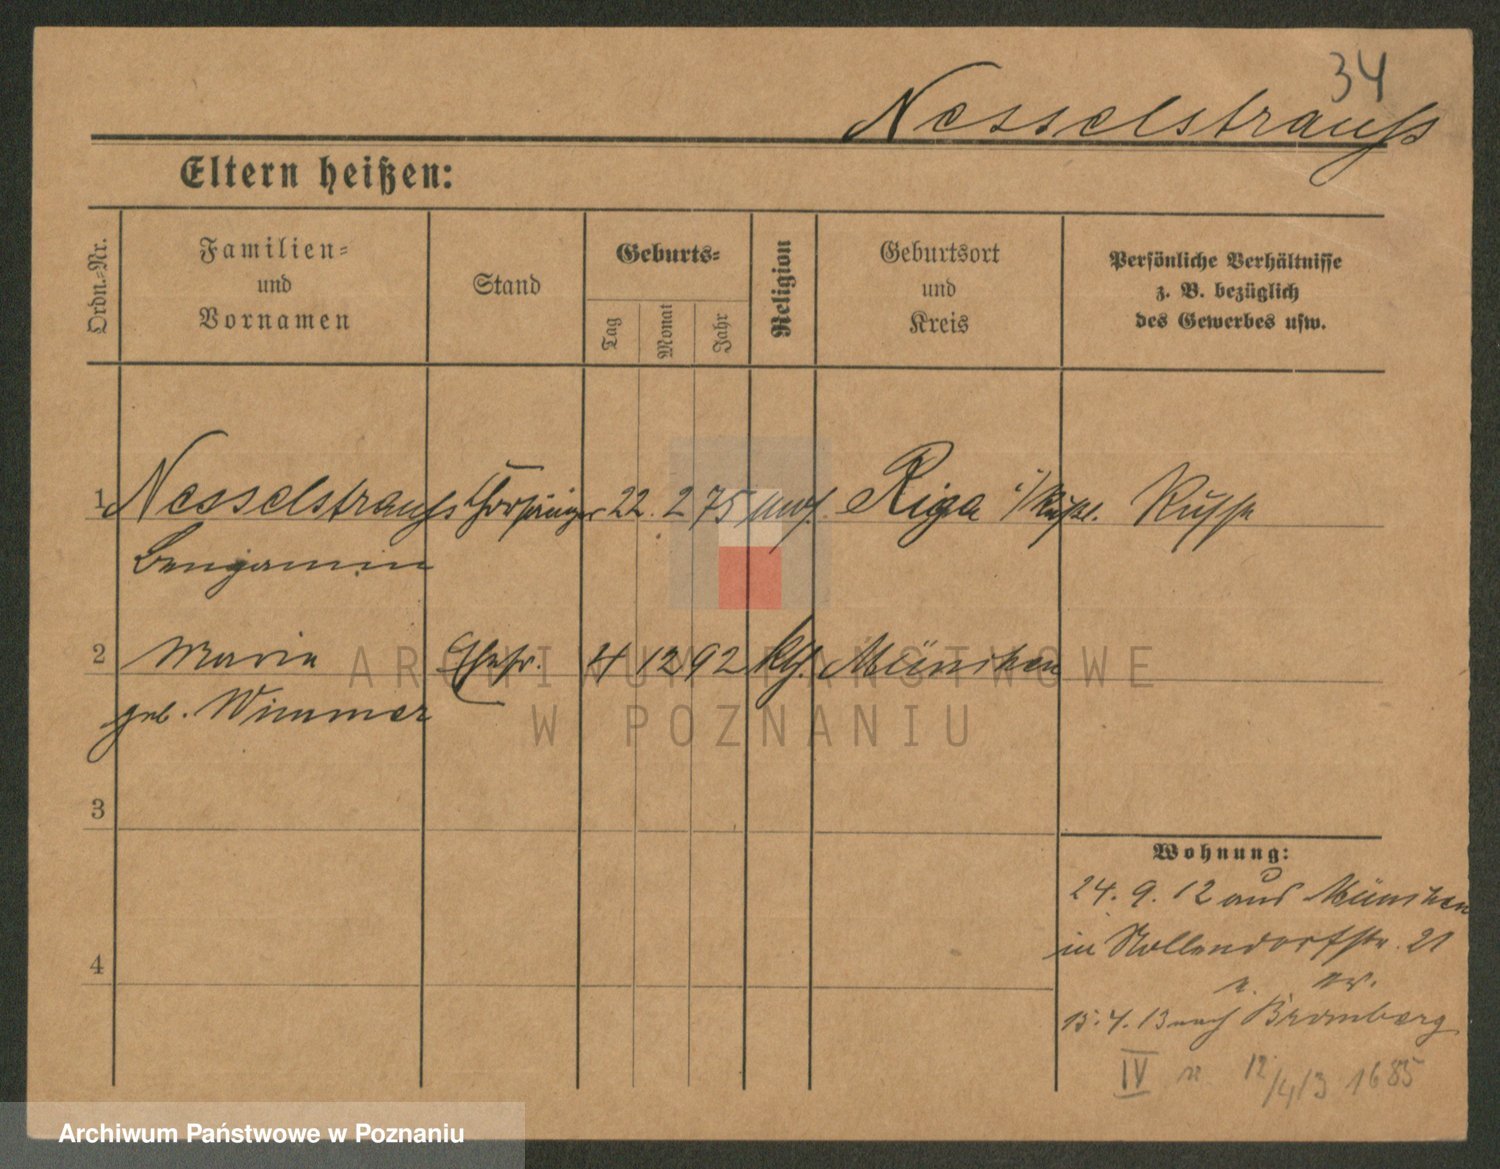 34
Nesselstrauß
Eltern heißen:
Ordn.-Nr.
Familien-
und
Vornamen
Stand
Geburts-
Tag
Monat
Jahr
Religion
Geburtsort
und
Kreis
Persönliche Verhältnisse
z. B. bezüglich
des Gewerbes usw.
1 Nesselstrauß 22. 2 75 Riga i/Rußl. Russe
Benjamin
2 Maria Ehefr. 4 12 92 kth. München
geb. Wimmer
3
4
Wohnung:
24. 9. 12 aus München
in Nollendorfstr. 21
15. 4. 13 nach Bromberg
IV 12/4/13 1685
ARCHIWUM PAŃSTWOWE
W POZNANIU
Archiwum Państwowe w Poznaniu